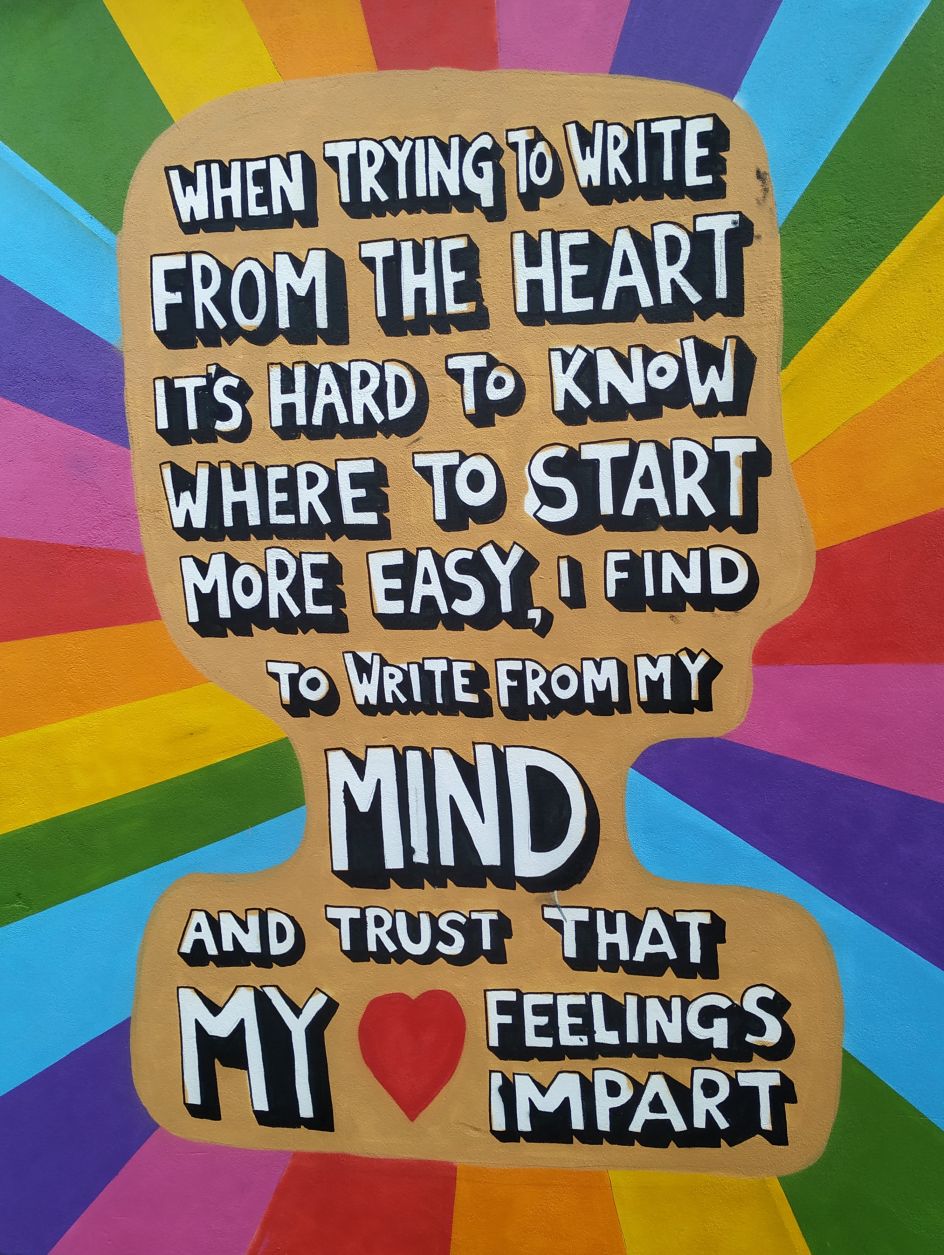 WHEN TRYING TO WRITE
FROM THE HEART
IT'S HARD TO KNOW
WHERE TO START
MORE EASY, I FIND
TO WRITE FROM MY
MIND
AND TRUST THAT
MY FEELINGS
IMPART